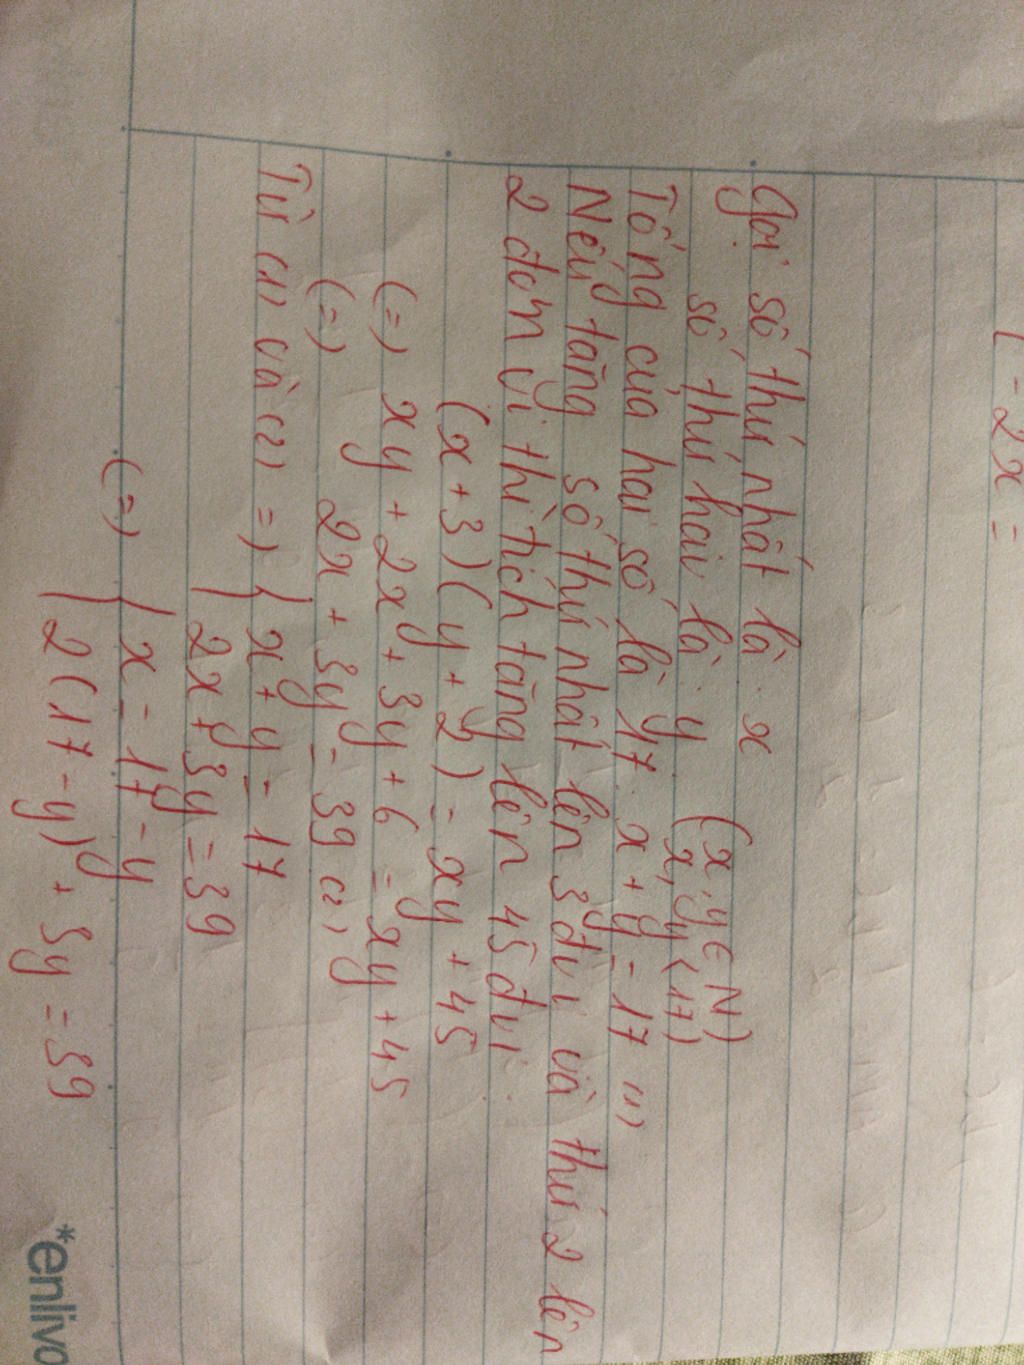 (-2x =
Gọi số thứ nhất là x
số thứ hai là y (x, y ∈ N)
(x, y < 17)
Tổng của hai số là 17. x + y = 17 (1)
Nếu tăng số thứ nhất lên 3 đvị và thứ 2 lên
2 đơn vị thì tích tăng lên 45 đvị.
(x + 3)(y + 2) = xy + 45
(=) xy + 2x + 3y + 6 = xy + 45
(=) 2x + 3y = 39 (2)
Từ (1) và (2) =) { x + y = 17
2x + 3y = 39
(=) { x = 17 - y
2(17 - y) + 3y = 39
*enlivo